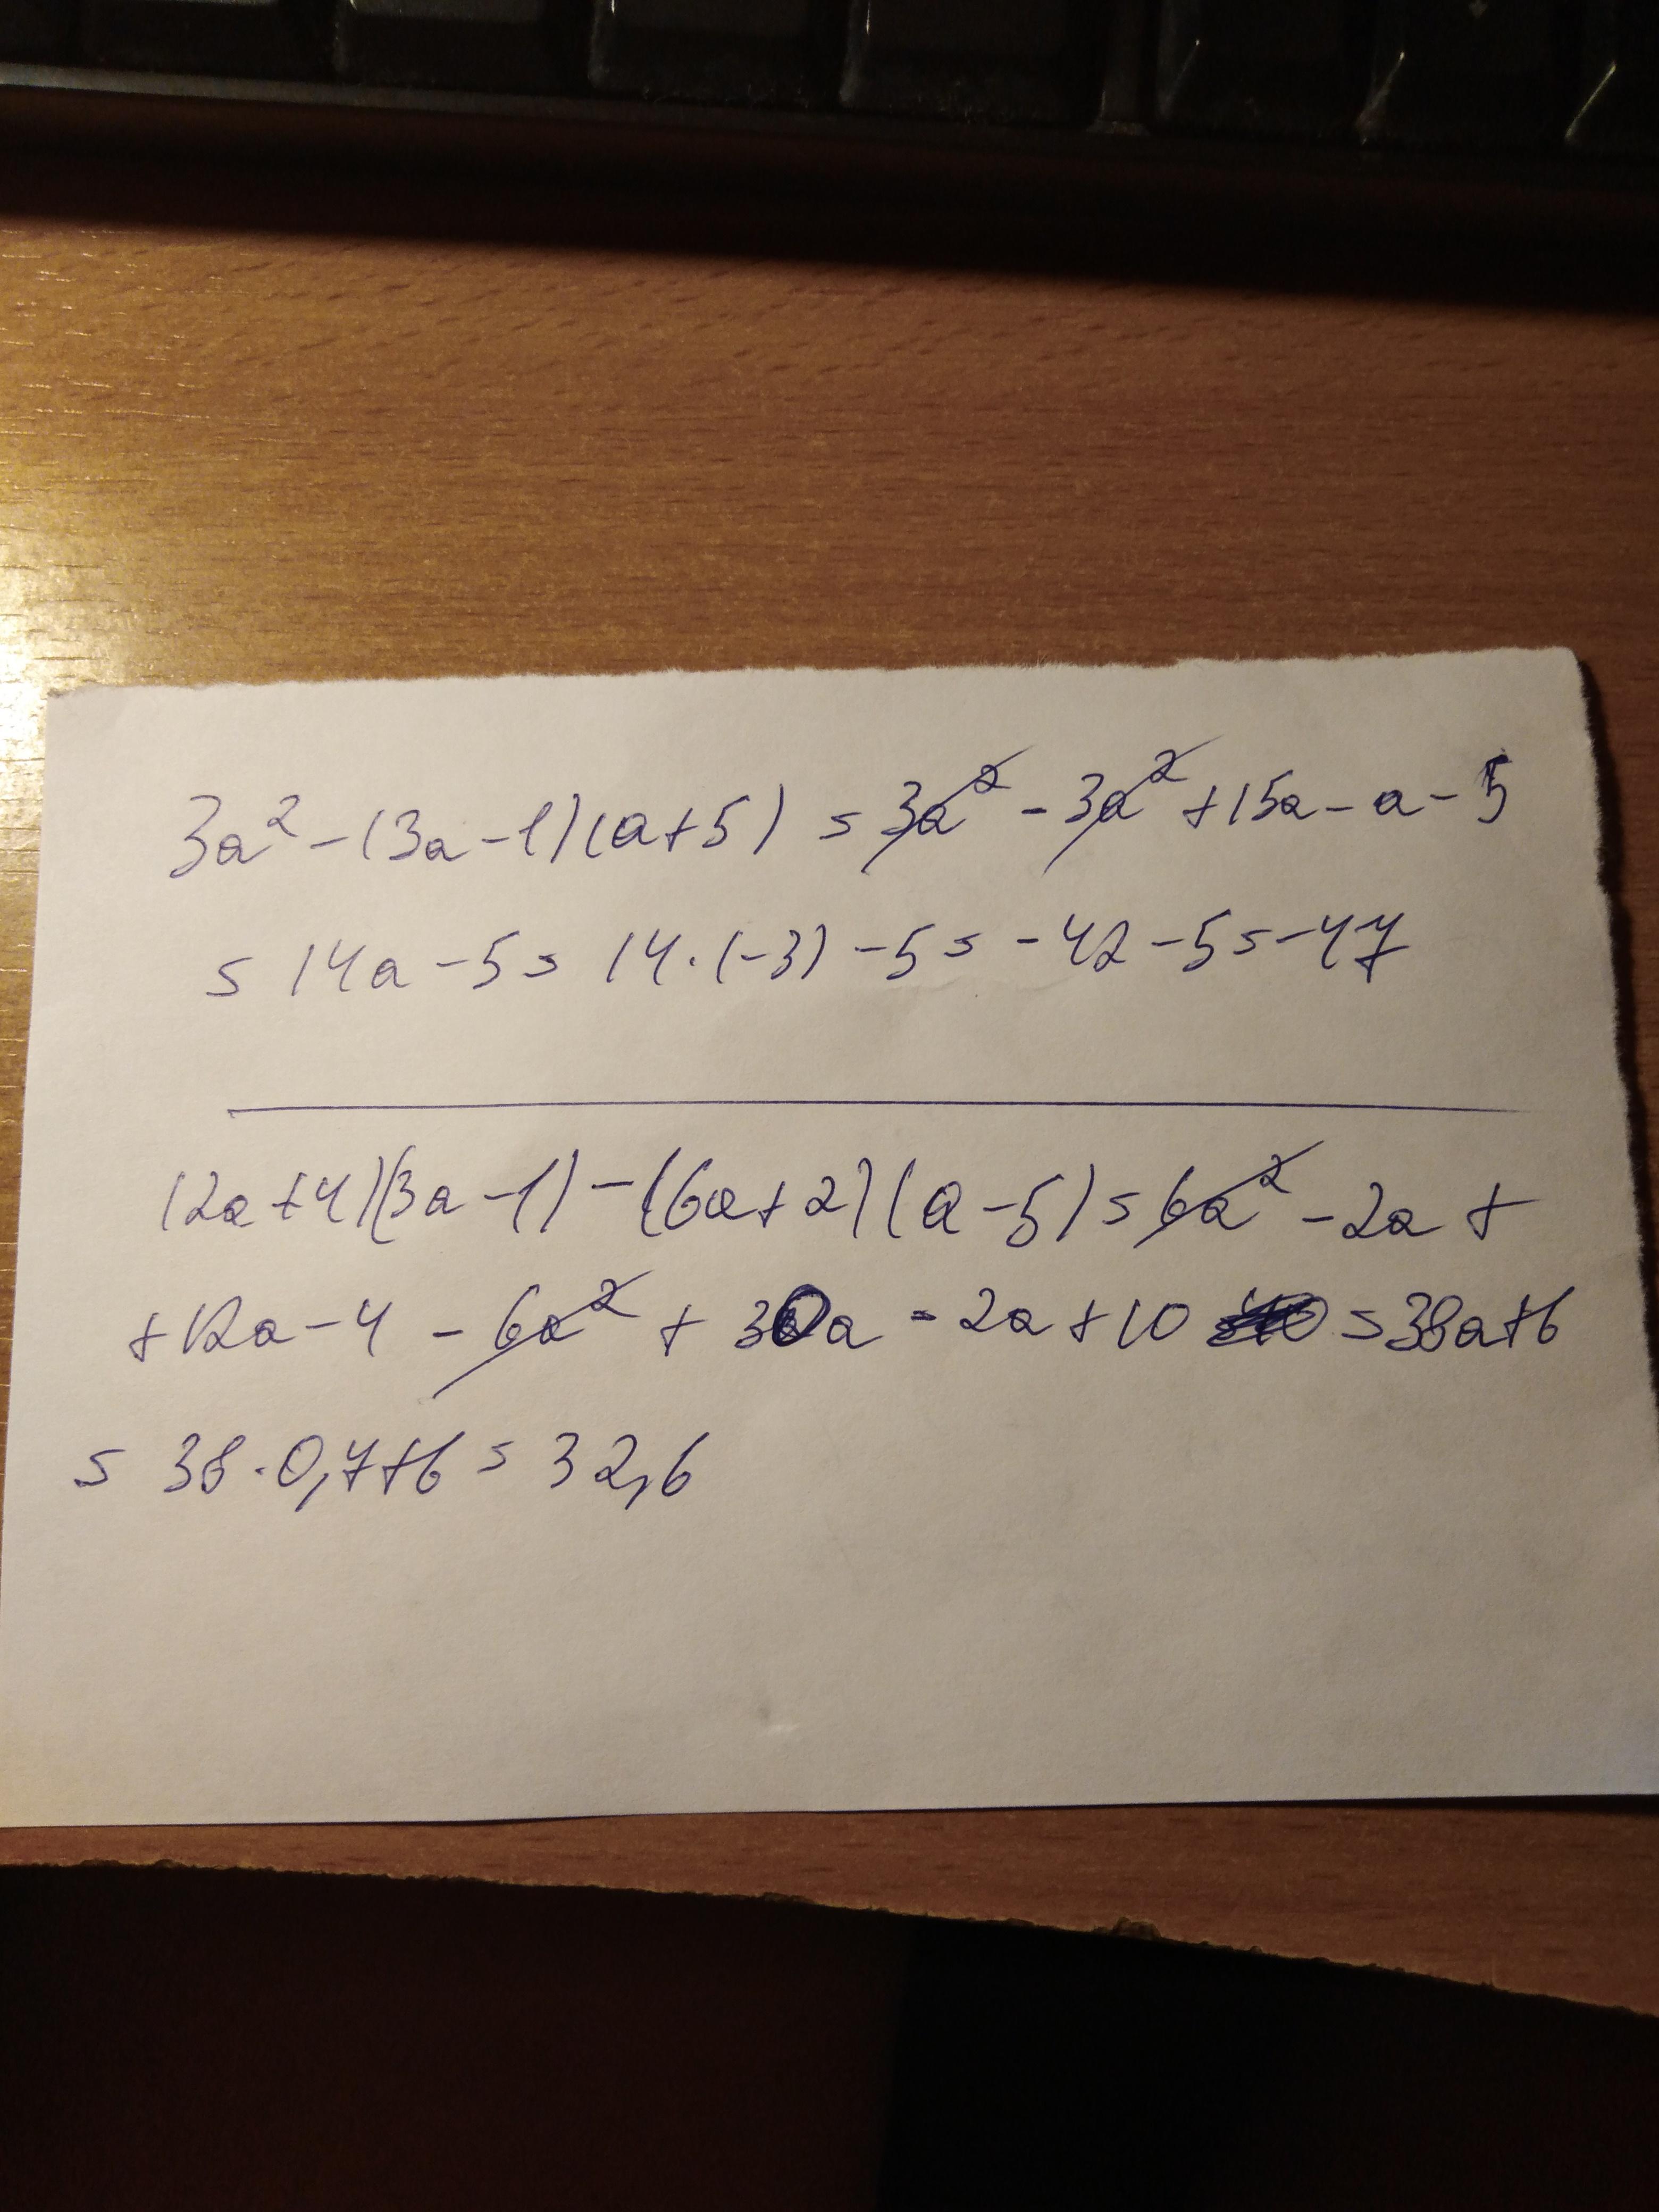 3a² - (3a - 1)(a + 5) = 3a² - 3a² + 15a - a - 5
= 14a - 5 = 14 · (-3) - 5 = -42 - 5 = -47
(2a + 4)(3a - 1) - (6a + 2)(a - 5) = 6a² - 2a +
+ 12a - 4 - 6a² + 30a - 2a + 10 = 38a + 6
= 38 · 0,7 + 6 = 32,6